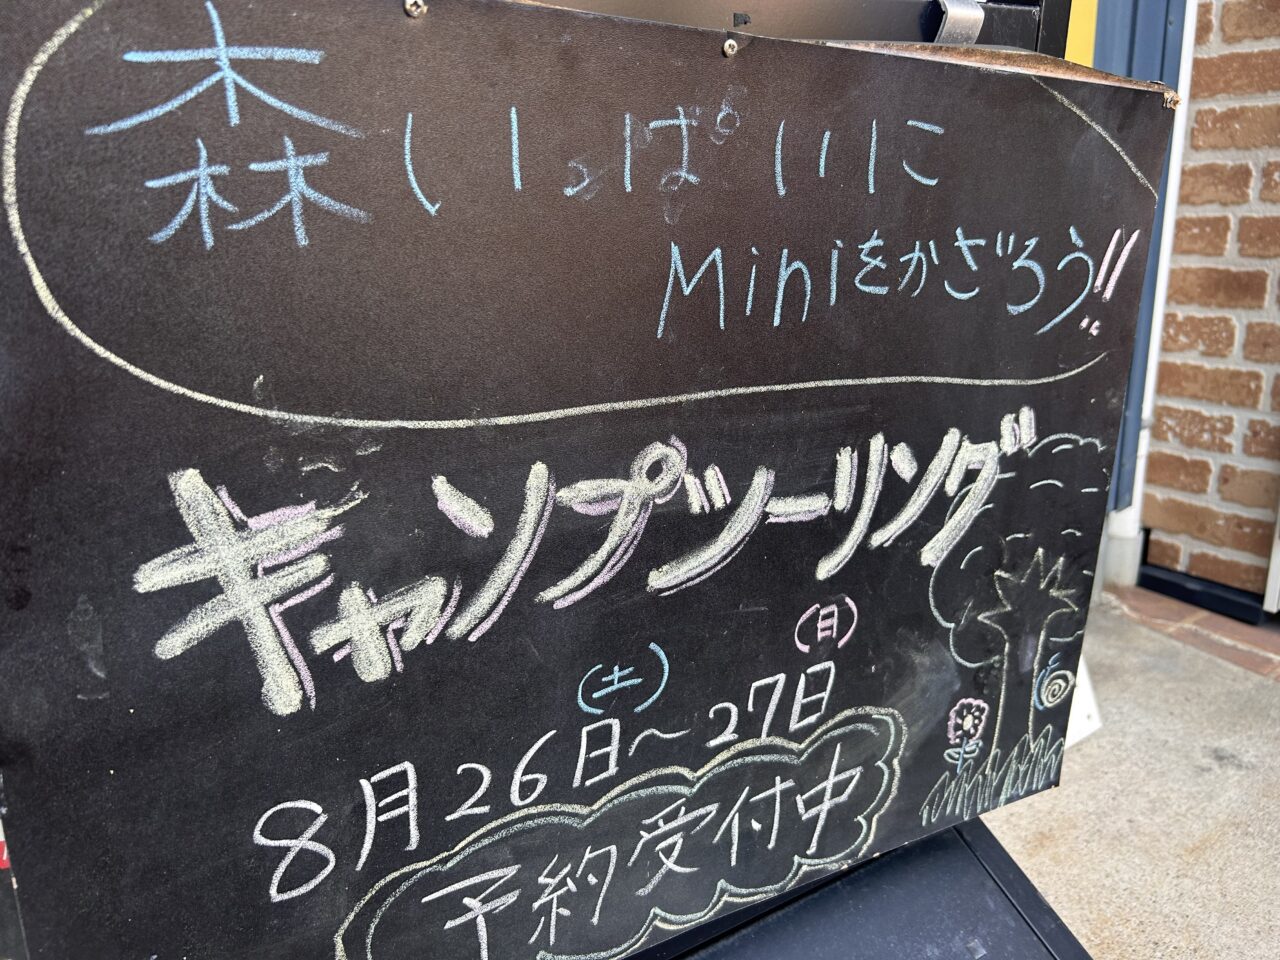 森いっぱいに
Miniをかざろう!!
キャンプツーリング
8月26日(土)～27日(月)
予約受付中